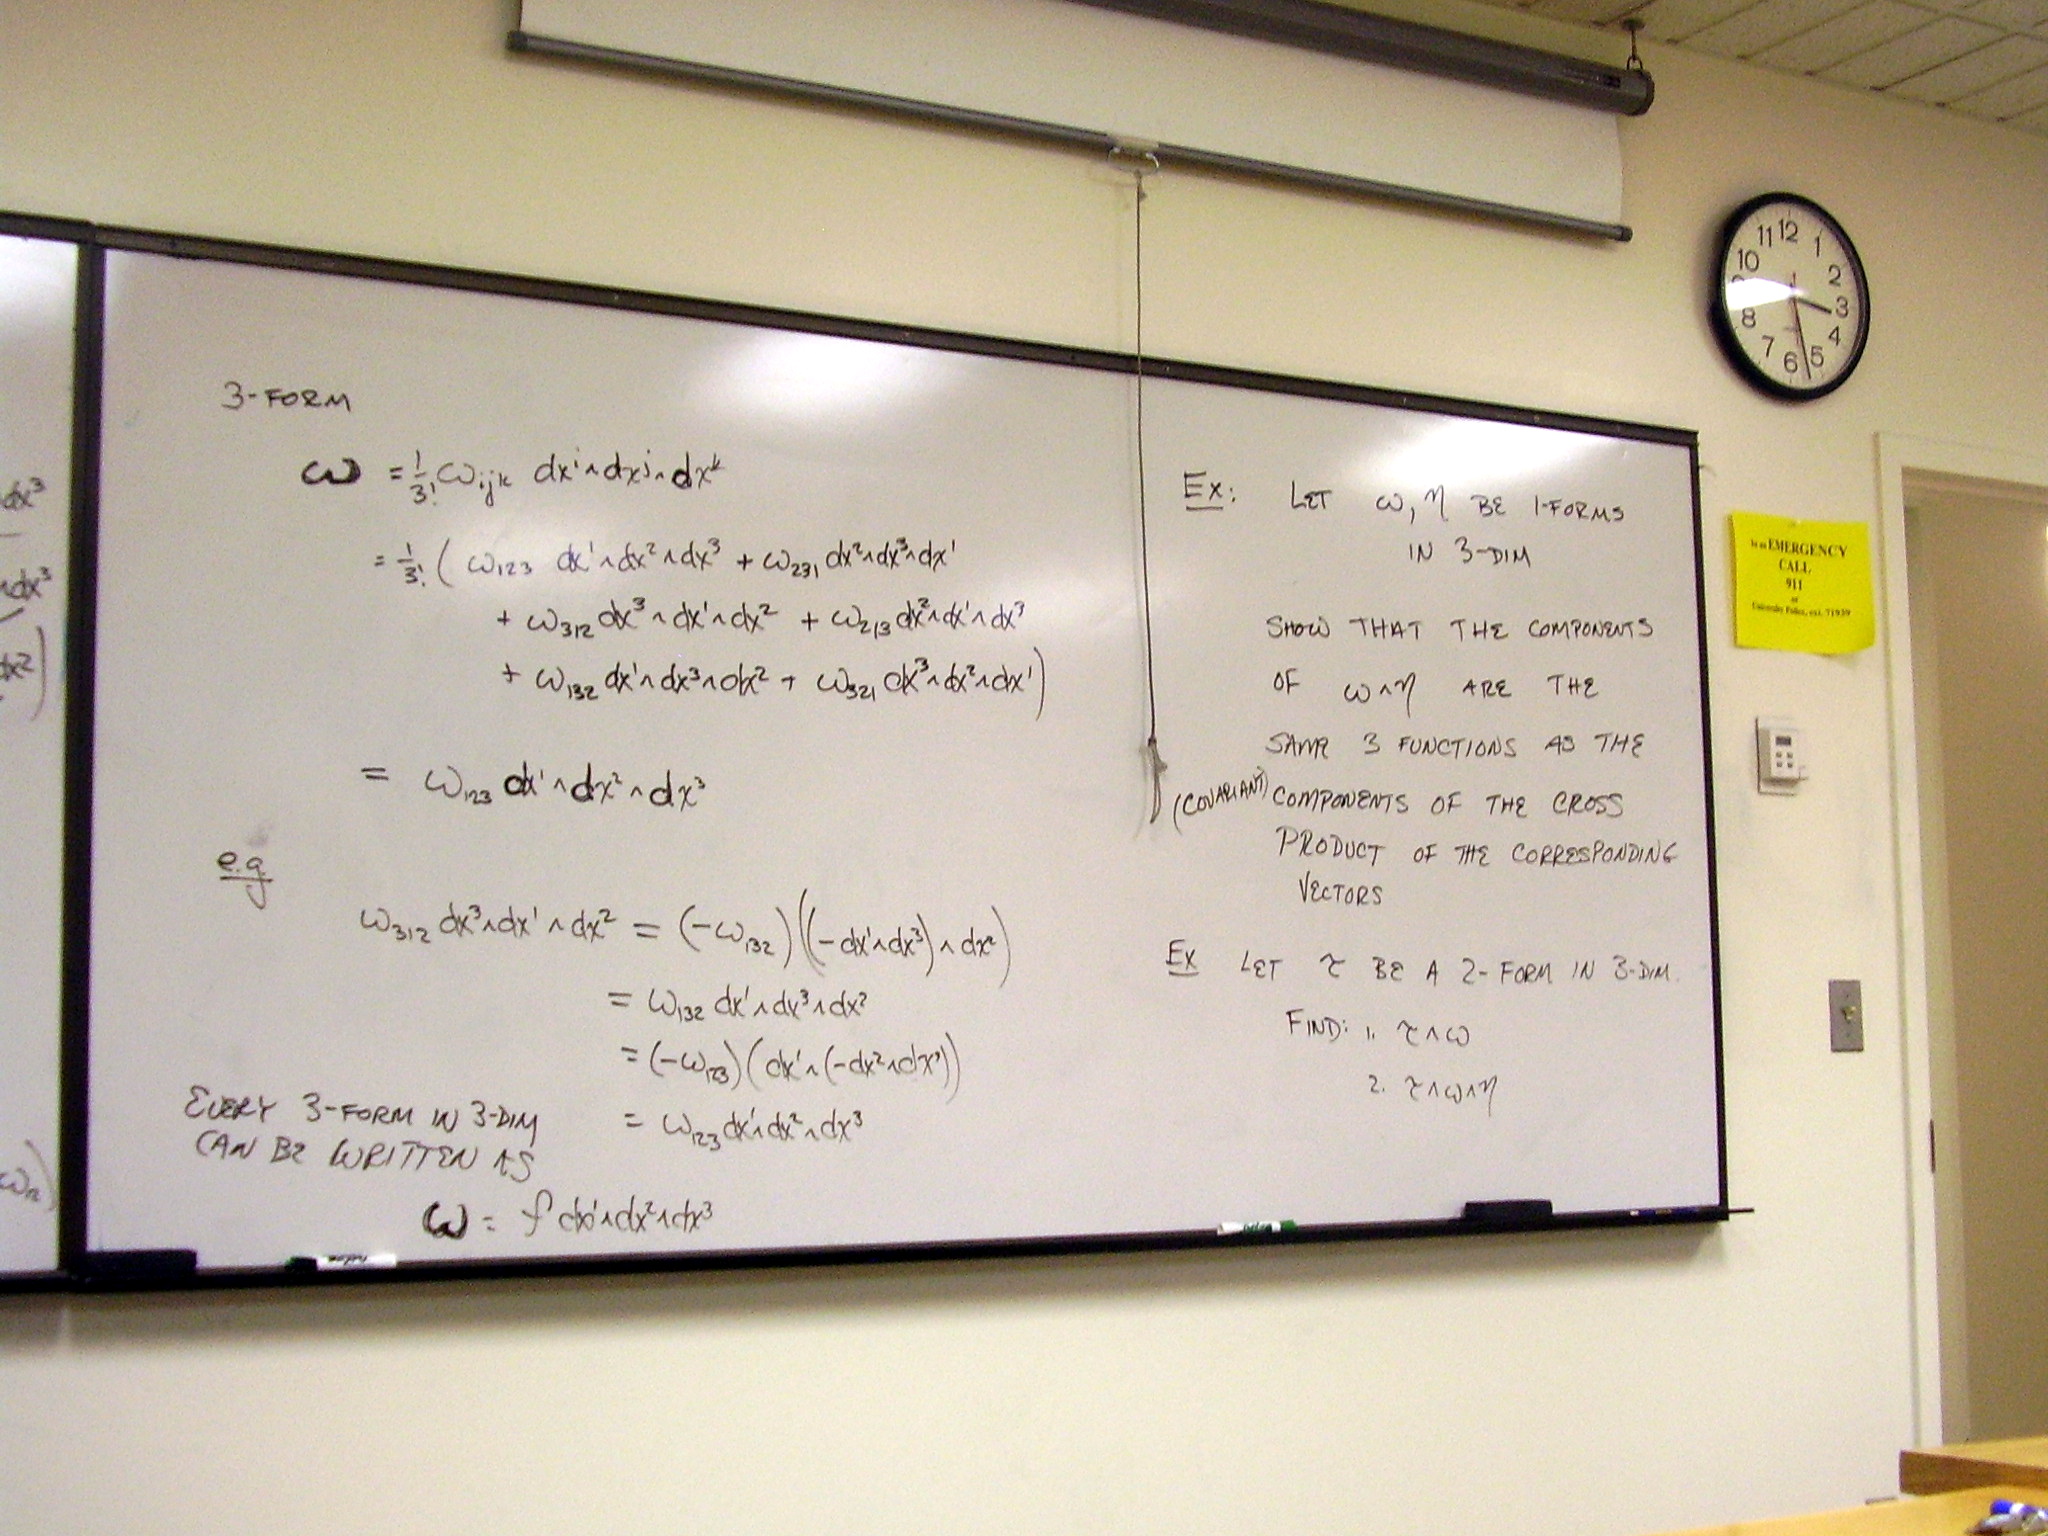 dx³
∧dx³
dx²)
ω₂)
3-FORM
ω = 1/3! ωijk dxⁱ∧dxʲ∧dxᵏ
= 1/3! ( ω₁₂₃ dx¹∧dx²∧dx³ + ω₂₃₁ dx²∧dx³∧dx¹
+ ω₃₁₂ dx³∧dx¹∧dx² + ω₂₁₃ dx²∧dx¹∧dx³
+ ω₁₃₂ dx¹∧dx³∧dx² + ω₃₂₁ dx³∧dx²∧dx¹ )
= ω₁₂₃ dx¹∧dx²∧dx³
e.g.
ω₃₁₂ dx³∧dx¹∧dx² = (-ω₁₃₂)((-dx¹∧dx³)∧dx²)
= ω₁₃₂ dx¹∧dx³∧dx²
= (-ω₁₂₃)(dx¹∧(-dx²∧dx³))
= ω₁₂₃ dx¹∧dx²∧dx³
EVERY 3-FORM IN 3-DIM
CAN BE WRITTEN AS
ω = f dx¹∧dx²∧dx³
Ex: LET ω, η BE 1-FORMS
IN 3-DIM
SHOW THAT THE COMPONENTS
OF ω∧η ARE THE
SAME 3 FUNCTIONS AS THE
(COVARIANT) COMPONENTS OF THE CROSS
PRODUCT OF THE CORRESPONDING
VECTORS
Ex LET τ BE A 2-FORM IN 3-DIM.
FIND: 1. τ∧ω
2. τ∧ω∧η
12
11 1
10 2
3
8 4
7 5
6
In an EMERGENCY
CALL
911
or
University Police, ext. 71939